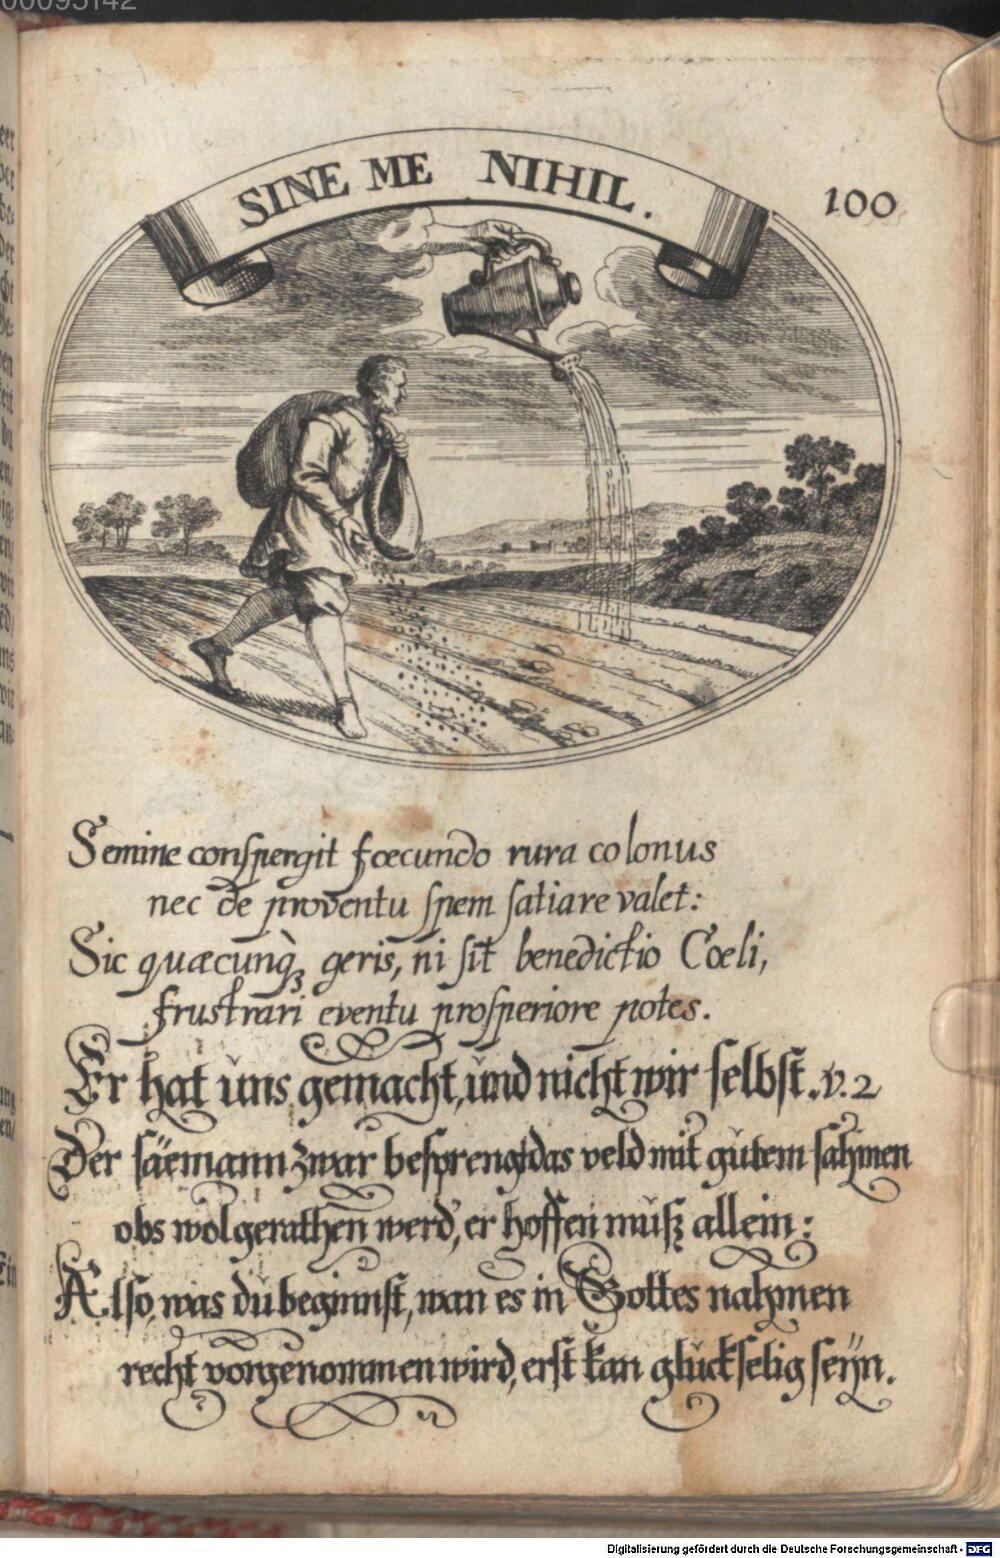 00095142
SINE ME NIHIL.
100
Semine conſpergit fœcundo rura colonus
nec de proventu ſpem ſatiare valet:
Sic quæcunqꝫ geris, ni ſit benedictio Cœli,
fruſtrari eventu proſperiore potes.
Er hat uns gemacht, und nicht wir ſelbſt. v. 2
Der ſäemann zwar beſprengt das veld mit gutem ſahmen
obs wol gerathen werd, er hoffen muſz allein:
Alſo, was du beginnſt, wan es in Gottes nahmen
recht vorgenommen wird, erſt kan glückſelig ſeÿn.
Digitalisierung gefördert durch die Deutsche Forschungsgemeinschaft - DFG